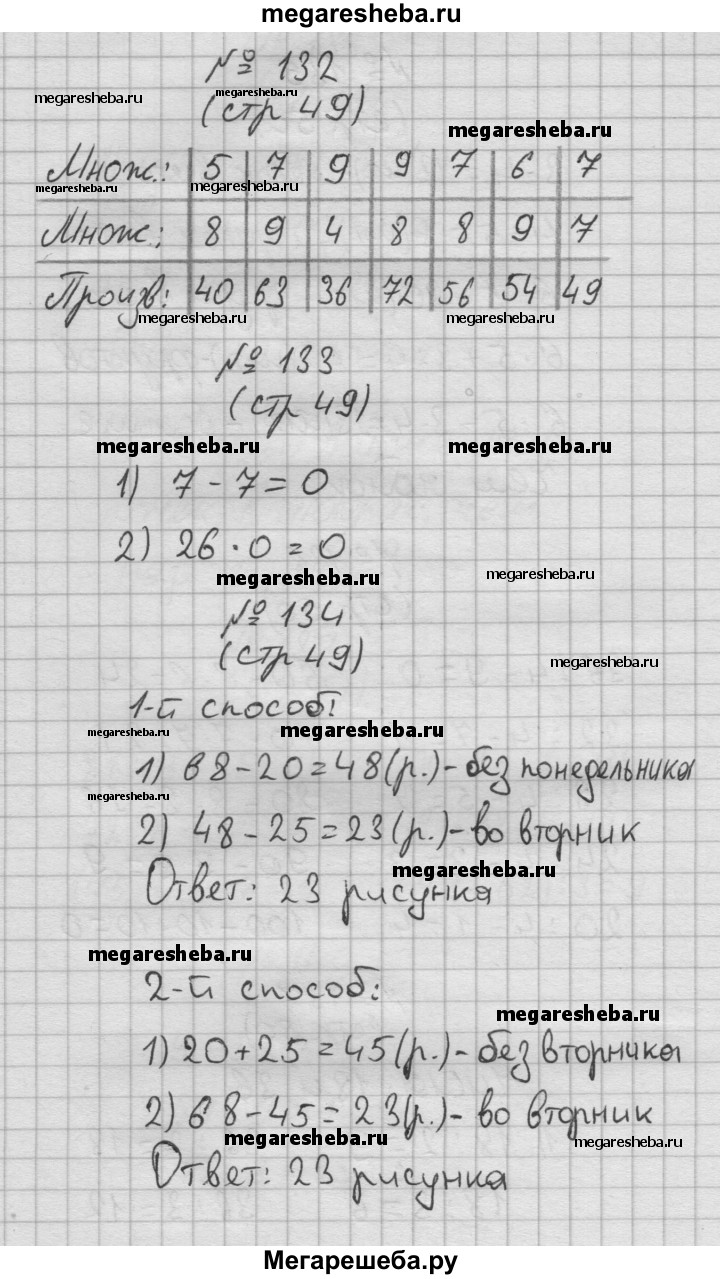 megaresheba.ru
№ 132
megaresheba.ru megaresheba.ru
(стр 49)
megaresheba.ru
Множ.: 5 7 9 9 7 6 7
megaresheba.ru megaresheba.ru
Множ: 8 9 4 8 8 9 7
Произв: 40 63 36 72 56 54 49
megaresheba.ru megaresheba.ru
№ 133
(стр 49)
megaresheba.ru megaresheba.ru
1) 7 - 7 = 0
2) 26 · 0 = 0
megaresheba.ru megaresheba.ru
№ 134
(стр 49)
megaresheba.ru
1-й способ:
megaresheba.ru megaresheba.ru
1) 68 - 20 = 48 (р.) - без понедельника
megaresheba.ru
2) 48 - 25 = 23 (р.) - во вторник
megaresheba.ru
Ответ: 23 рисунка
megaresheba.ru
2-й способ:
megaresheba.ru
1) 20 + 25 = 45 (р.) - без вторника
2) 68 - 45 = 23 (р.) - во вторник
megaresheba.ru megaresheba.ru
Ответ: 23 рисунка
Мегарешеба.ру